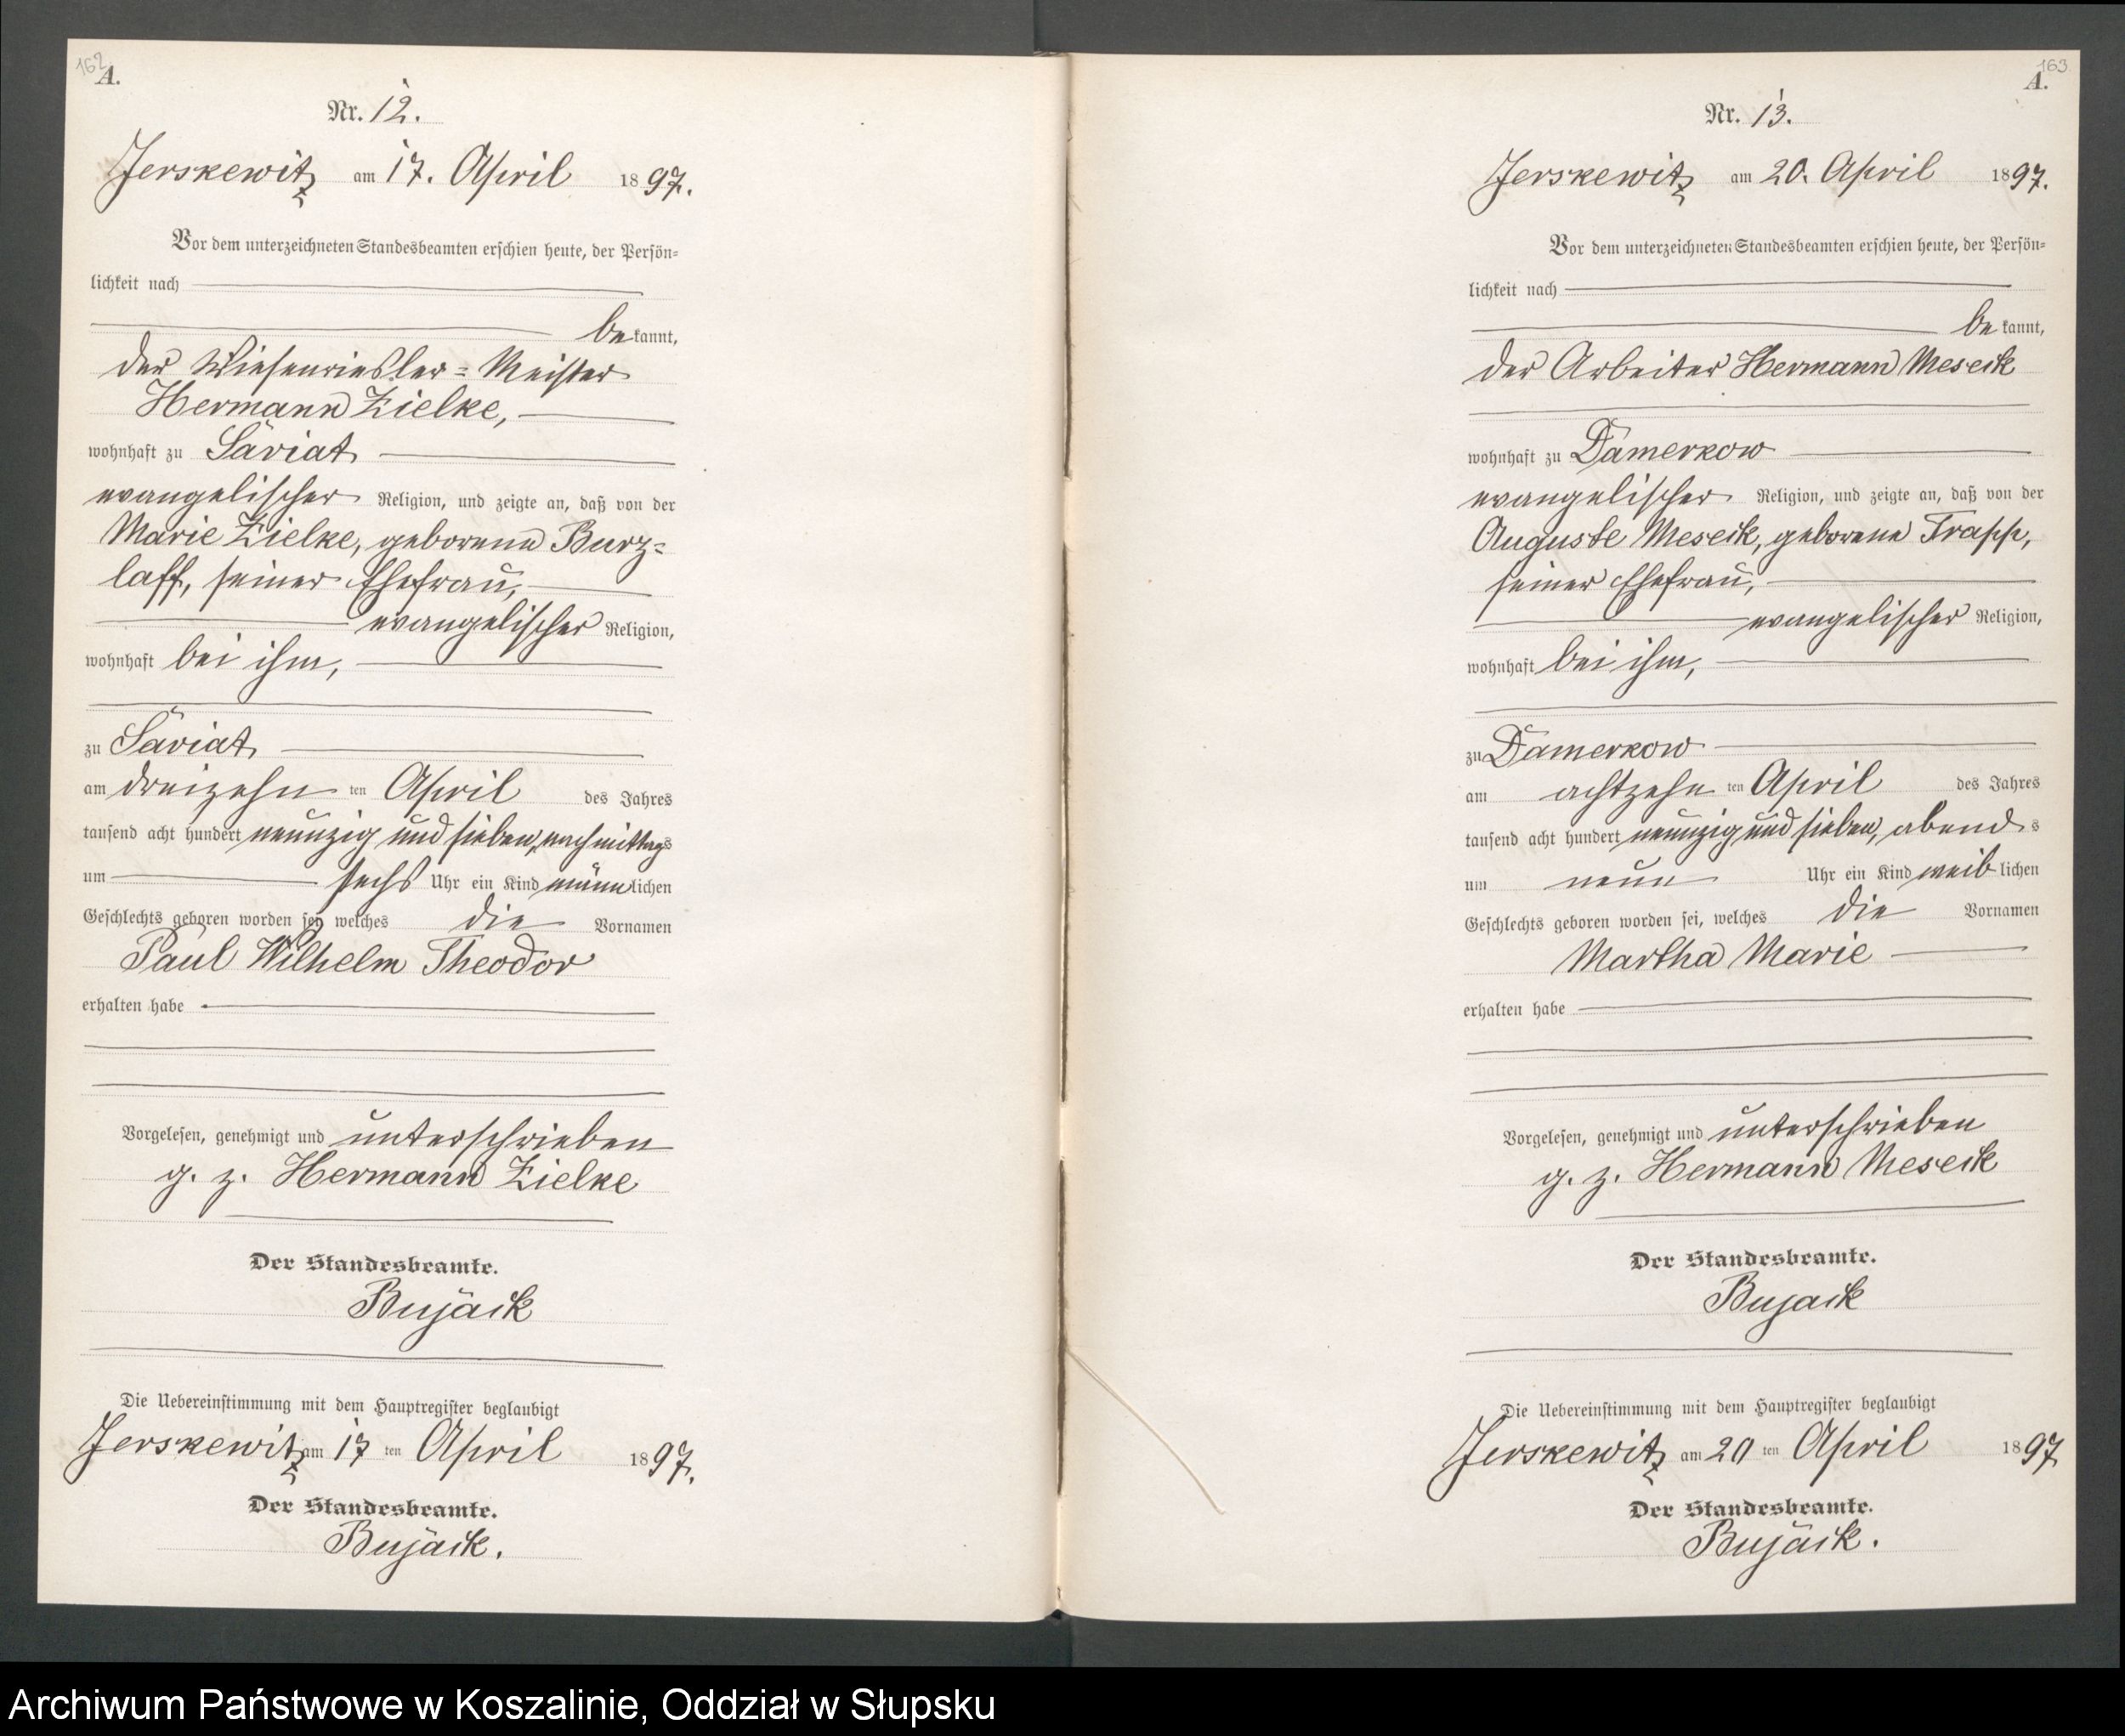 162
A.
Nr. 12.
Jerskewitz am 17. April 1897.
Vor dem unterzeichneten Standesbeamten erschien heute, der Persön-
lichkeit nach
bekannt,
der Wiesenriesler-Meister
Hermann Zielke,
wohnhaft zu Saviat
evangelischer Religion, und zeigte an, daß von der
Marie Zielke, geborene Burz-
laff, seiner Ehefrau,
evangelischer Religion,
wohnhaft bei ihm,
zu Saviat
am dreizehnten April des Jahres
tausend acht hundert neunzig und sieben, nachmittags
um sechs Uhr ein Kind männlichen
Geschlechts geboren worden sei, welches die Vornamen
Paul Wilhelm Theodor
erhalten habe
Vorgelesen, genehmigt und unterschrieben
g. z. Hermann Zielke
Der Standesbeamte.
Bujack
Die Uebereinstimmung mit dem Hauptregister beglaubigt
Jerskewitz am 17ten April 1897.
Der Standesbeamte.
Bujack.
163
A.
Nr. 13.
Jerskewitz am 20. April 1897.
Vor dem unterzeichneten Standesbeamten erschien heute, der Persön-
lichkeit nach
bekannt,
der Arbeiter Hermann Meseck
wohnhaft zu Damerkow
evangelischer Religion, und zeigte an, daß von der
Auguste Meseck, geborene Trapp,
seiner Ehefrau,
evangelischer Religion,
wohnhaft bei ihm,
zu Damerkow
am achtzehnten April des Jahres
tausend acht hundert neunzig und sieben, abends
um neun Uhr ein Kind weiblichen
Geschlechts geboren worden sei, welches die Vornamen
Martha Marie
erhalten habe
Vorgelesen, genehmigt und unterschrieben
g. z. Hermann Meseck
Der Standesbeamte.
Bujack
Die Uebereinstimmung mit dem Hauptregister beglaubigt
Jerskewitz am 20ten April 1897
Der Standesbeamte.
Bujack.
Archiwum Państwowe w Koszalinie, Oddział w Słupsku